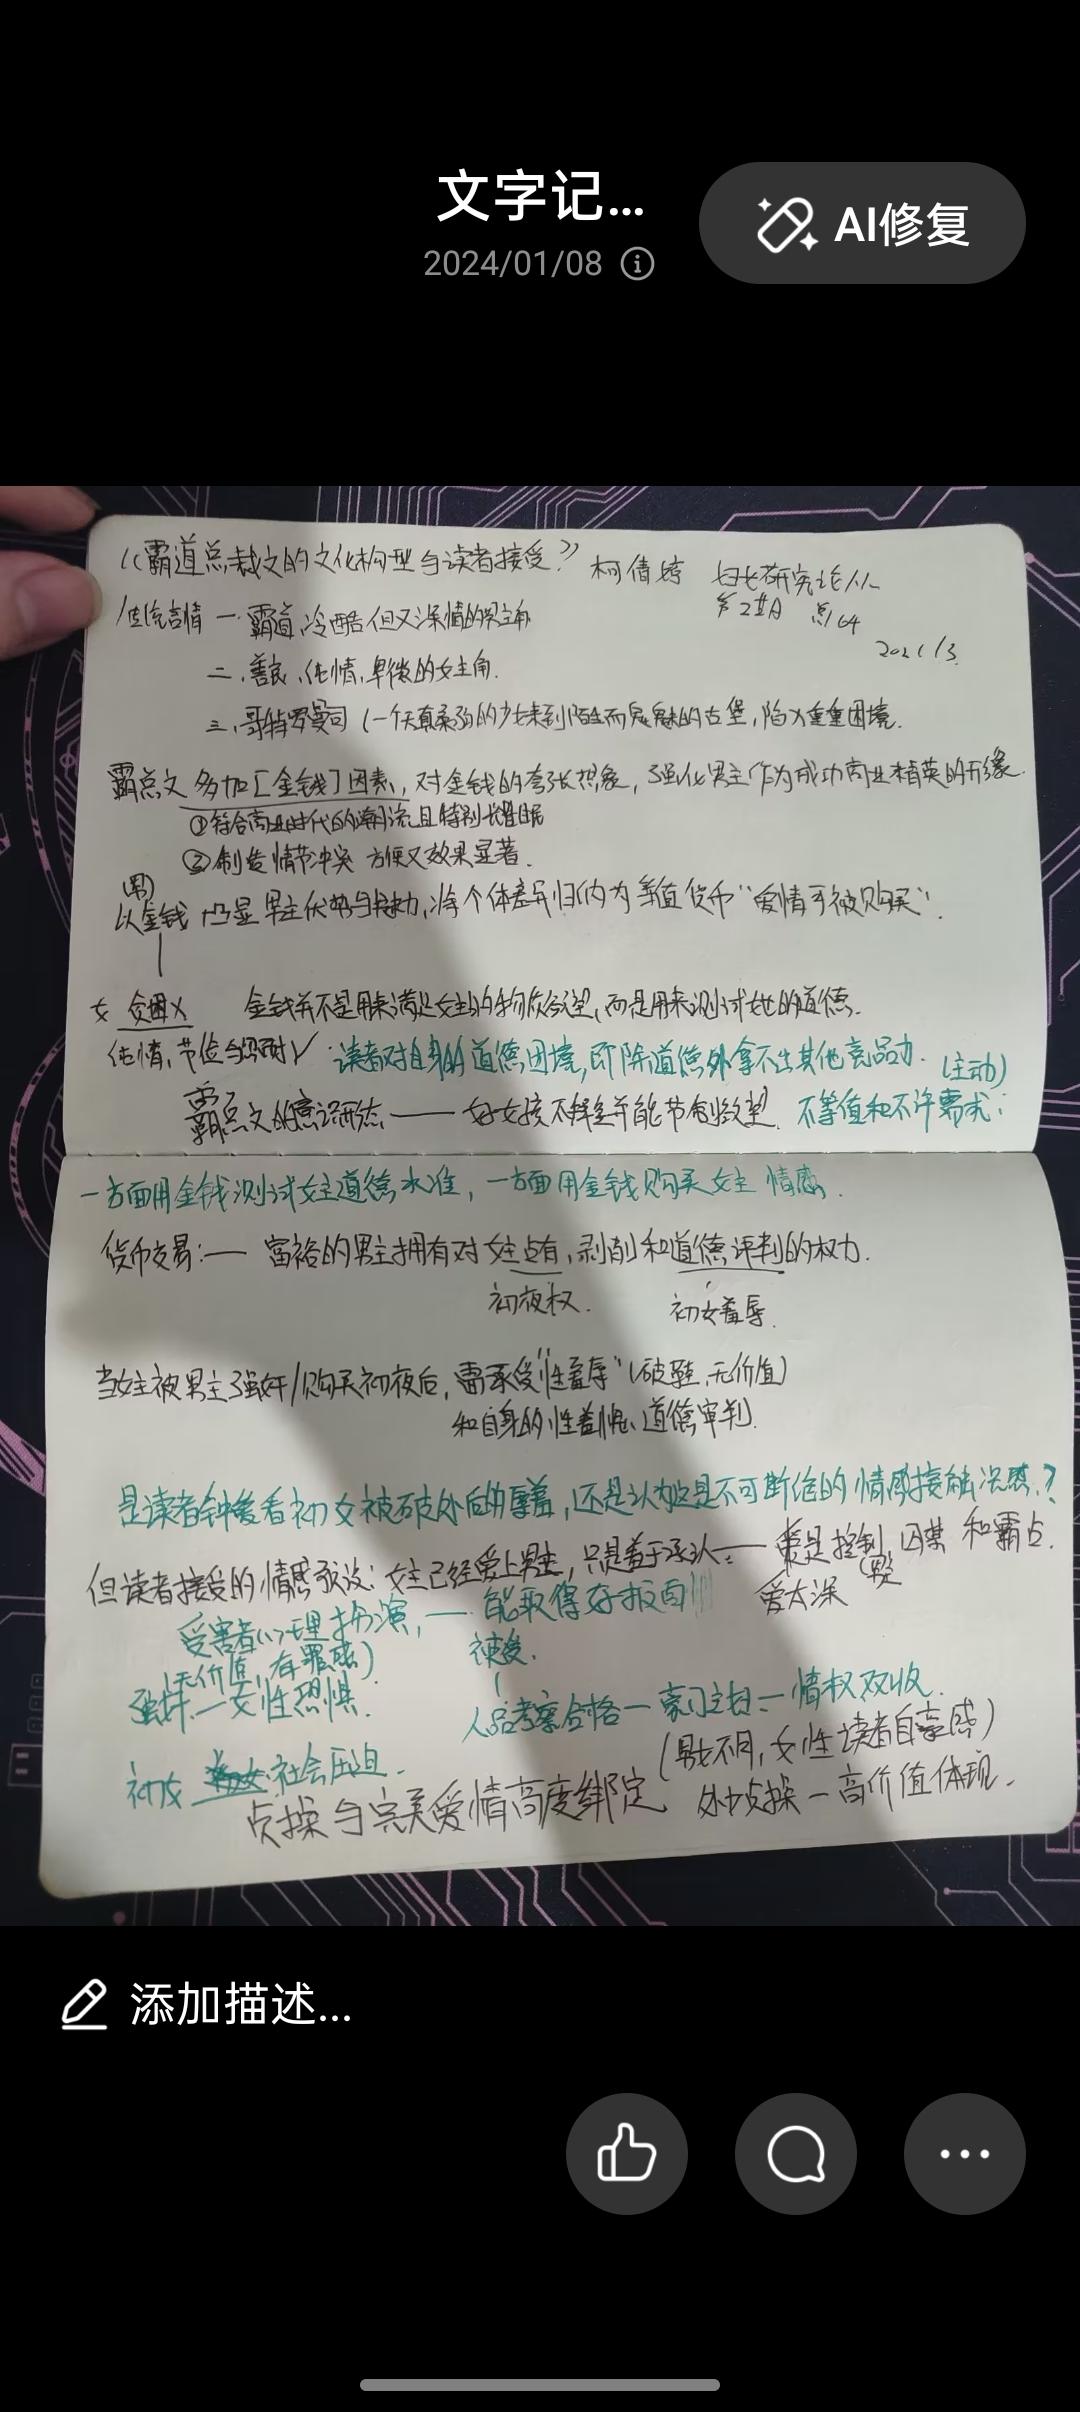 文字记...
AI修复
2024/01/08
《霸道总裁文的文化构型与读者接受》 柯倩婷 妇女研究论丛
第2期 总164
2021/3.
传统言情 一.霸道,冷酷但又深情的男主角
二.善良、纯情,卑微的女主角.
三.哥特罗曼司(一个天真柔弱的少女来到陌生而鬼魅的古堡,陷入重重困境.
霸总文 多加[金钱]因素,对金钱的夸张想象,强化男主作为成功商业精英的形象.
①符合商业时代的潮流且特别
②制造情节冲突 方便又效果显著.
(男)
以金钱 凸显男主优势与魅力,将个体差异归纳为等值货币“爱情可被购买”.
女 贫困×
金钱并不是用来满足女主的物质欲望,而是用来测试她的道德.
纯情,节俭与√
读者对自身的道德困境,即除道德外拿不出其他竞品力.
(主动)
霸总文的意识形态——好女孩不拜金并能节制欲望.
不等值和不许需求:
一方面用金钱测试女主道德水准,一方面用金钱购买女主情感.
货币交易:— 富裕的男主拥有对女主占有,剥削和道德评判的权力.
初夜权.
初女羞辱.
当女主被男主强奸/购买初夜后,需承受“性羞辱”(破鞋,无价值)
和自身的性羞愧、道德审判.
是读者钟爱看初女被破处后的羞,还是认为这是不可断绝的情感接触?
但读者接受的情感:女主已经爱上男主,只是羞于承认— 是控制,囚禁和霸占.
爱太深
受害者心理扮演,— 能取得好报
(无价值,有罪感)
被爱.
强奸—女性恐惧.
人品考察合格—豪门主妇—情权双收.
初女 社会压迫.
(男女不同,女性读者自豪感)
贞操与完美爱情高度绑定
处女贞操—高价值体现.
添加描述...